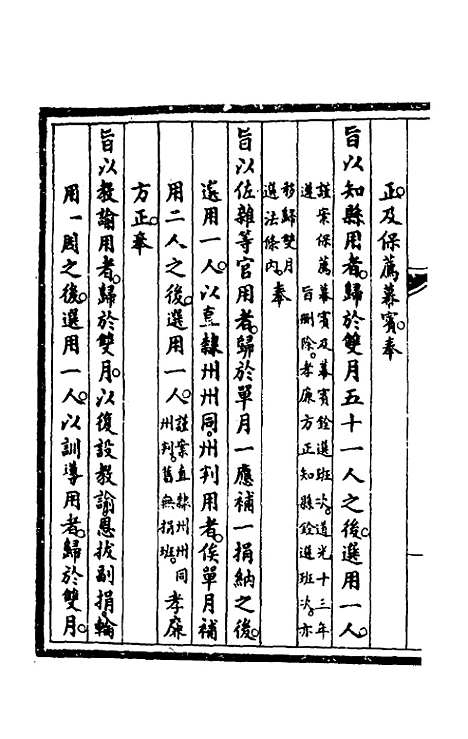 正及保薦幕賓奉
旨以知縣用者歸於雙月五十一人之後選用一人
謹案保薦幕賓及幕賓銓選班次道光十三年
遵 旨刪除孝廉方正知縣銓選班次亦
移歸雙月
選法條内 奉
旨以佐雜等官用者歸於單月一應補一捐納之後
選用一人以直隸州州同州判用者俟單月補
用二人之後選用一人謹案直隸州州同
州判舊無捐班 孝廉
方正奉
旨以教諭用者歸於雙月以復設教諭恩拔副捐輪
用一周之後選用一人以訓導用者歸於雙月